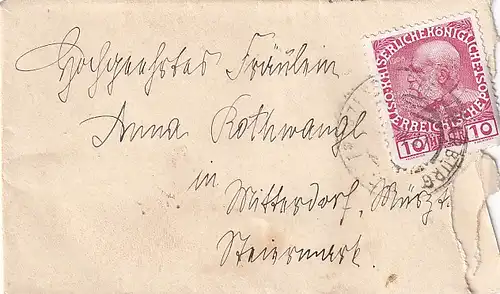 Hochgeehrtes Fräulein
Anna Rothwangl
in
Mitterdorf, Mürzt.
Steiermark.
KAISERLICHE KÖNIGLICHE
ÖSTERREICHISCHE
10 10
BURG